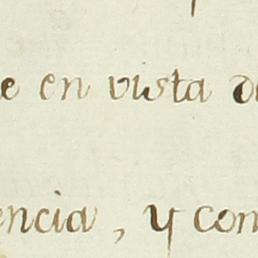 e en vista de
encia, y con